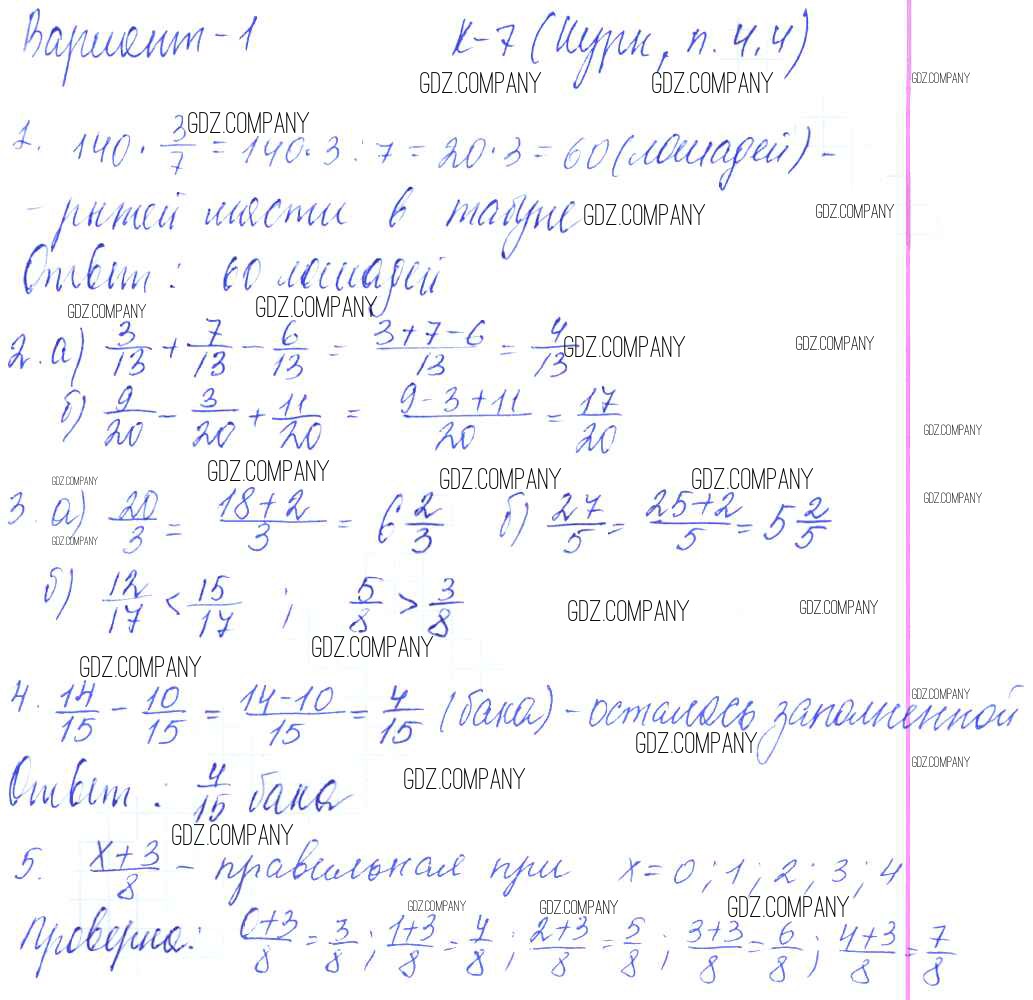 Вариант-1 К-7 (Нурк, п. 4.4)
GDZ.COMPANY GDZ.COMPANY GDZ.COMPANY
GDZ.COMPANY
1. 140 · 3/7 = 140 · 3 : 7 = 20 · 3 = 60 (лошадей) -
- рыжей масти в табуне GDZ.COMPANY GDZ.COMPANY
Ответ: 60 лошадей
GDZ.COMPANY GDZ.COMPANY
2. а) 3/13 + 7/13 - 6/13 = (3+7-6)/13 = 4/13 GDZ.COMPANY GDZ.COMPANY
б) 9/20 - 3/20 + 11/20 = (9-3+11)/20 = 17/20 GDZ.COMPANY
GDZ.COMPANY GDZ.COMPANY GDZ.COMPANY GDZ.COMPANY
3. а) 20/3 = (18+2)/3 = 6 2/3 б) 27/5 = (25+2)/5 = 5 2/5 GDZ.COMPANY
GDZ.COMPANY
б) 12/17 < 15/17 ; 5/8 > 3/8 GDZ.COMPANY GDZ.COMPANY
GDZ.COMPANY GDZ.COMPANY
4. 14/15 - 10/15 = (14-10)/15 = 4/15 (бака) - осталось заполненной GDZ.COMPANY
GDZ.COMPANY GDZ.COMPANY
Ответ: 4/15 бака GDZ.COMPANY
GDZ.COMPANY
5. (x+3)/8 - правильная при x = 0; 1; 2; 3; 4
GDZ.COMPANY GDZ.COMPANY GDZ.COMPANY
Проверка: (0+3)/8 = 3/8; (1+3)/8 = 4/8; (2+3)/8 = 5/8; (3+3)/8 = 6/8; (4+3)/8 = 7/8